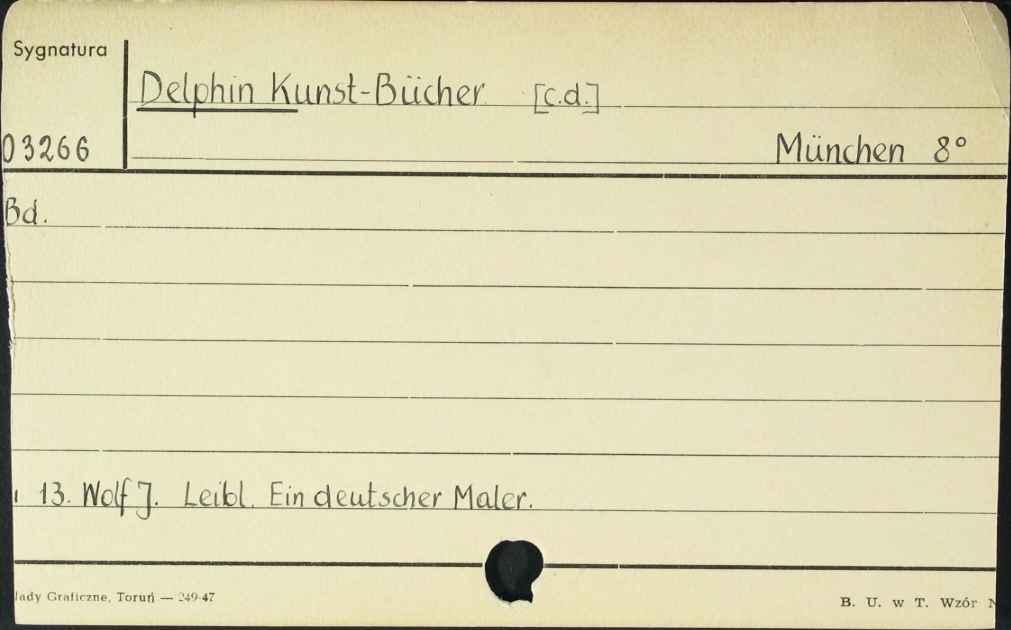 Sygnatura
Delphin Kunst-Bücher [c.d.]
03266
München 8°
Bd.
13. Wolf J. Leibl. Ein deutscher Maler.
łady Graficzne, Toruń — 249-47
B. U. w T. Wzór N